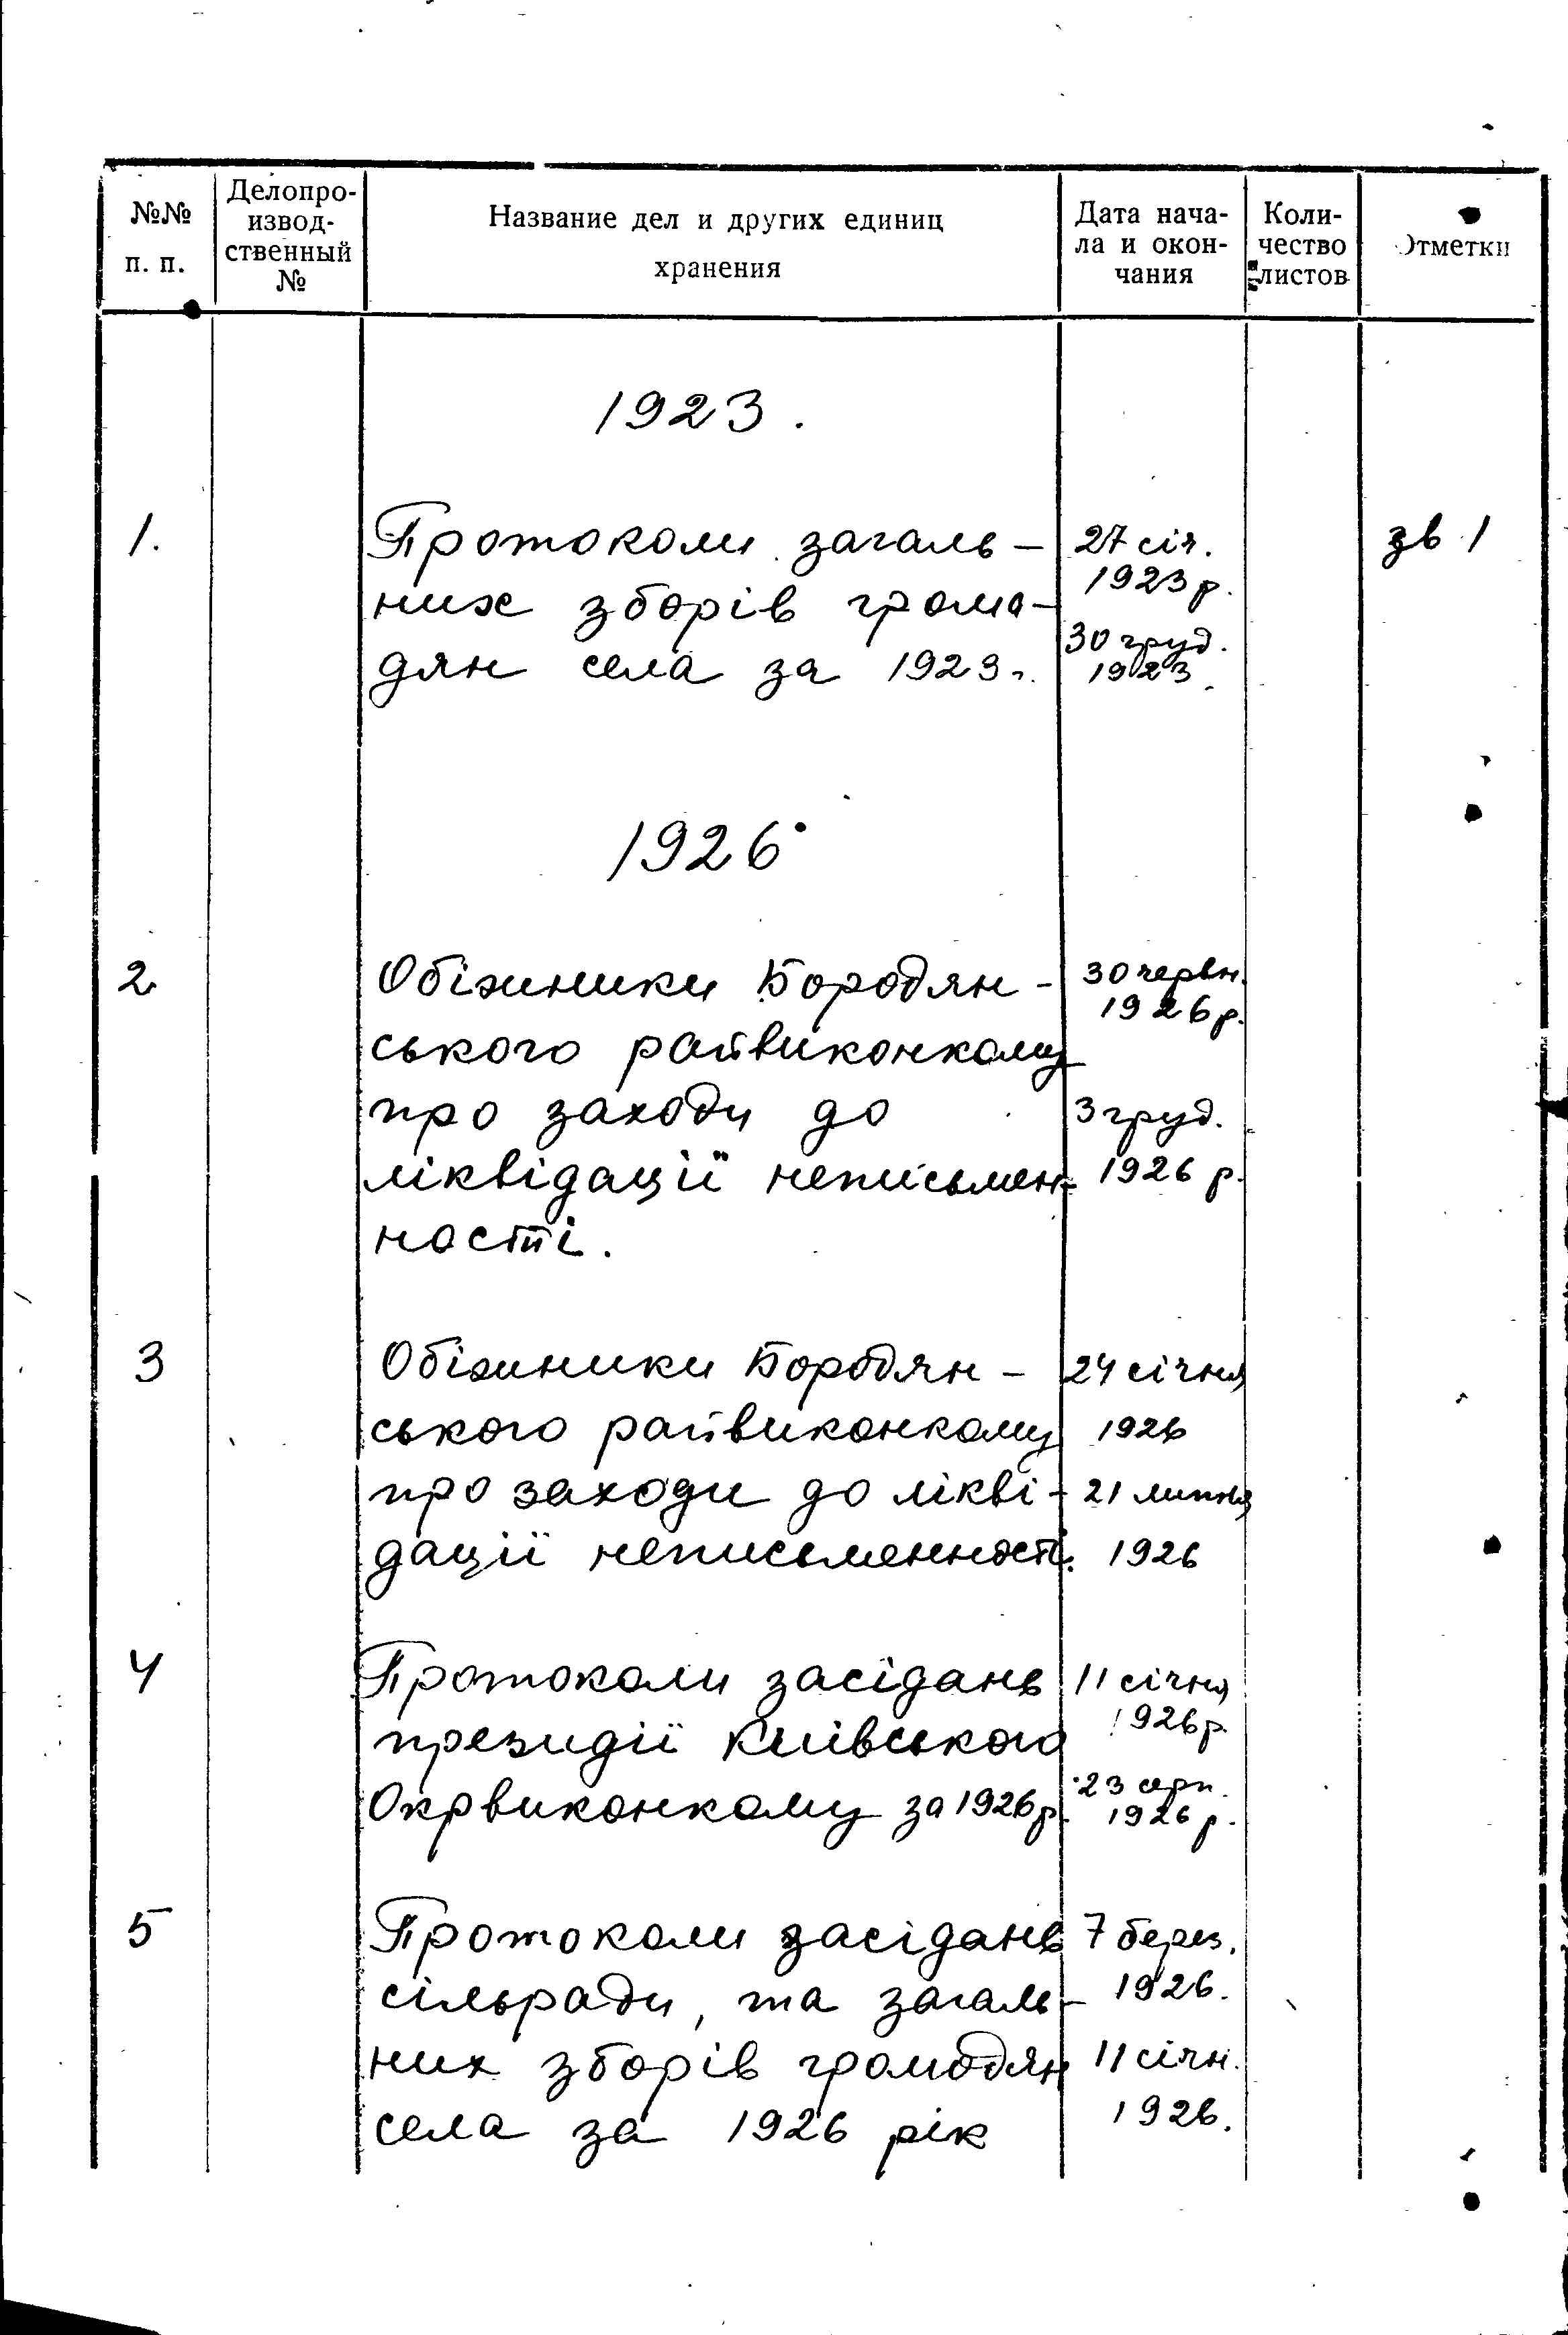 №№ п. п.
Делопро-
извод-
ственный
№
Название дел и других единиц
хранения
Дата нача-
ла и окон-
чания
Коли-
чество
листов
Отметки
1923.
1.
Протоколи загаль-
них зборів грома-
дян села за 1923 г.
27 січ.
1923 р.
30 груд.
1923
зв 1
1926
2
Обіжники Бородян-
ського райвиконкому
про заходи до
ліквідації неписьмен-
ності.
30 червн.
1926 р.
3 груд.
1926 р.
3
Обіжники Бородян-
ського райвиконкому
про заходи до лікві-
дації неписьменності.
24 січня
1926
21 липня
1926
4
Протоколи засідань
президії Київського
Окрвиконкому за 1926 р.
11 січня
1926 р.
23 серп.
1926 р.
5
Протоколи засідань
сільради, та загаль-
них зборів громодян
села за 1926 рік
7 берез.
1926.
11 січн.
1926.